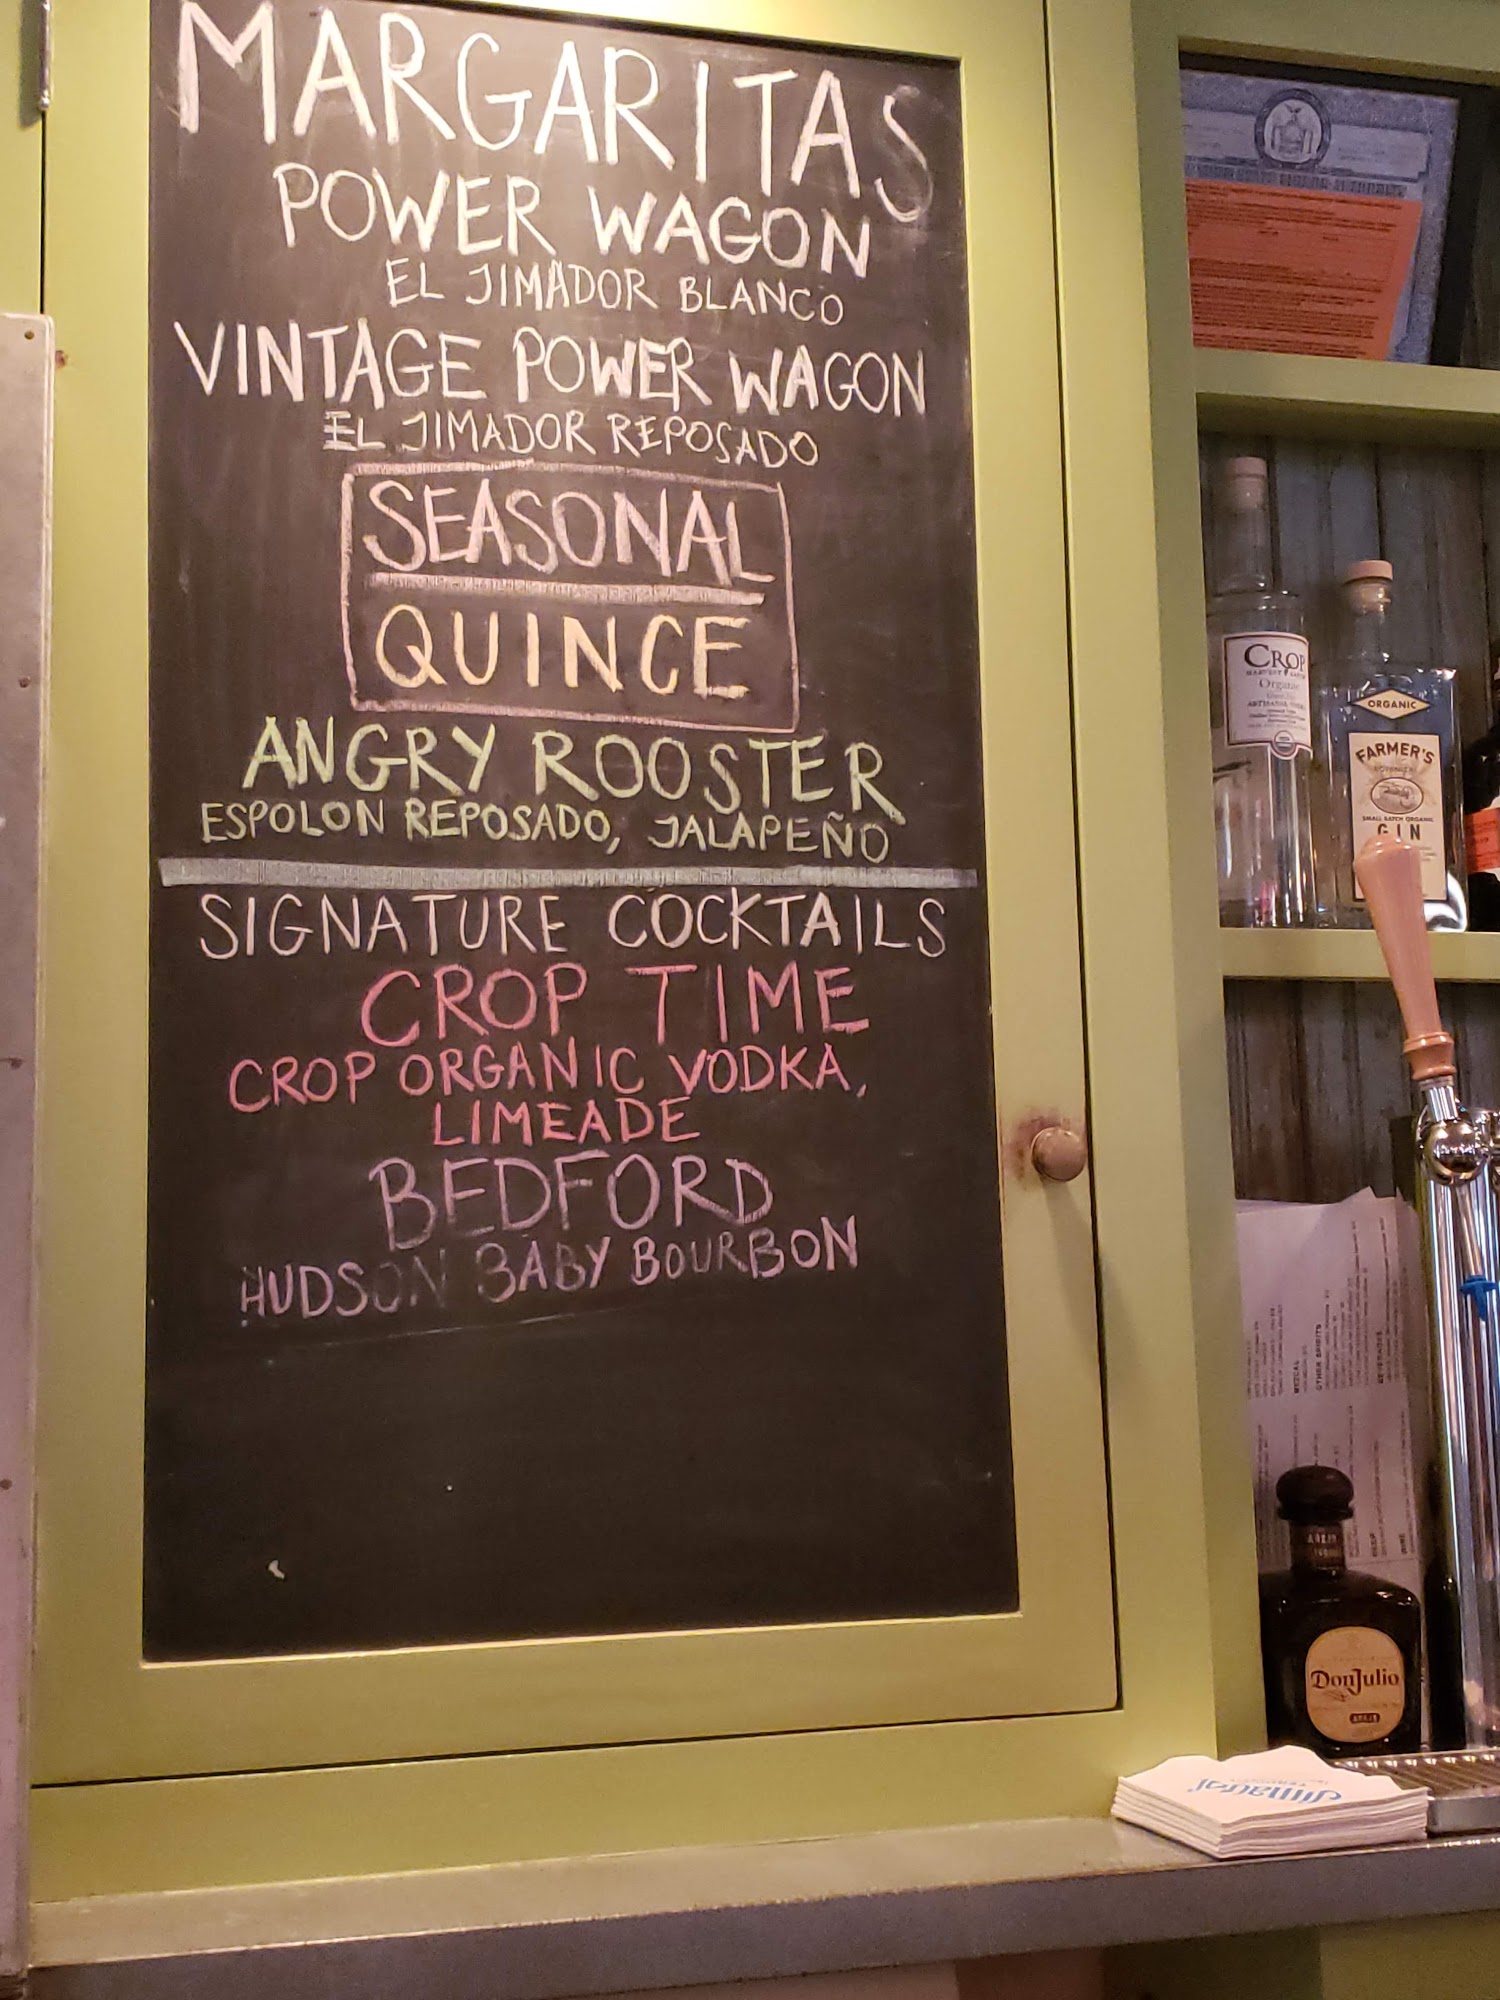 MARGARITAS
POWER WAGON
EL JIMADOR BLANCO
VINTAGE POWER WAGON
EL JIMADOR REPOSADO
SEASONAL
QUINCE
ANGRY ROOSTER
ESPOLON REPOSADO, JALAPEÑO
SIGNATURE COCKTAILS
CROP TIME
CROP ORGANIC VODKA,
LIMEADE
BEDFORD
HUDSON BABY BOURBON
CROP
HARVEST EARTH
Organic
ORGANIC
FARMER'S
SMALL BATCH ORGANIC
GIN
MEZCAL
OTHER SPIRITS
BEVERAGES
BEER
WINE
AÑEJO
Don Julio
AÑEJO
Jimador